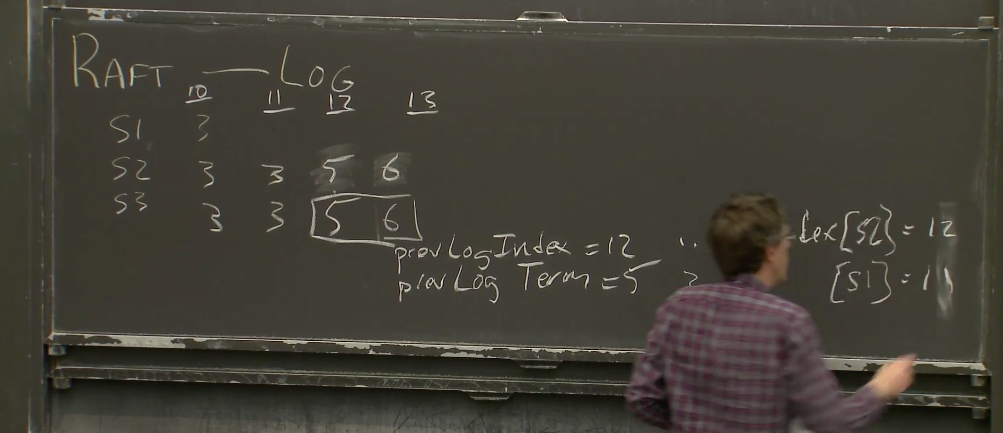 RAFT — LOG
10 11 12 13
S1 3
S2 3 3 5 6
S3 3 3 5 6
prevLogIndex = 12
prevLogTerm = 5
dex[S2] = 12
[S1] = 11